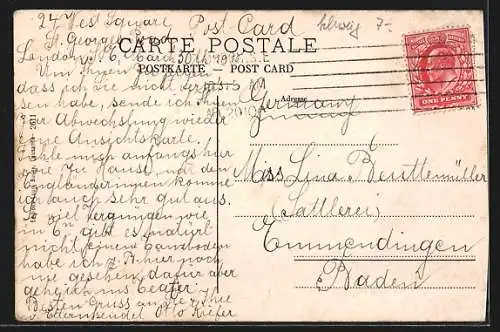 24 West Square Post Card
St. Georges Road
London S. E. March
CARTE POSTALE
POSTKARTE - POST CARD
Um Ihnen
dass ich sie nicht vergessen habe, sende ich Ihnen
zur Abwechslung wieder
eine Ansichtskarte.
Fühle mich anfangs hier
wie zu Hause, mit den
Engländerinnen komme
ich auch sehr gut aus.
viel Vergnügen wie
in E'n gibt es natürl.
nicht einen Tanzboden
habe ich hier noch
nie gesehen, dafür aber
gehe ich ins Teater
Besten Gruss an Sie
u. Otto Kiefer
Adresse
Germany
Miss Lina Beuttemüller
(Sattlerei)
Emmendingen
Baden
ONE PENNY
7-